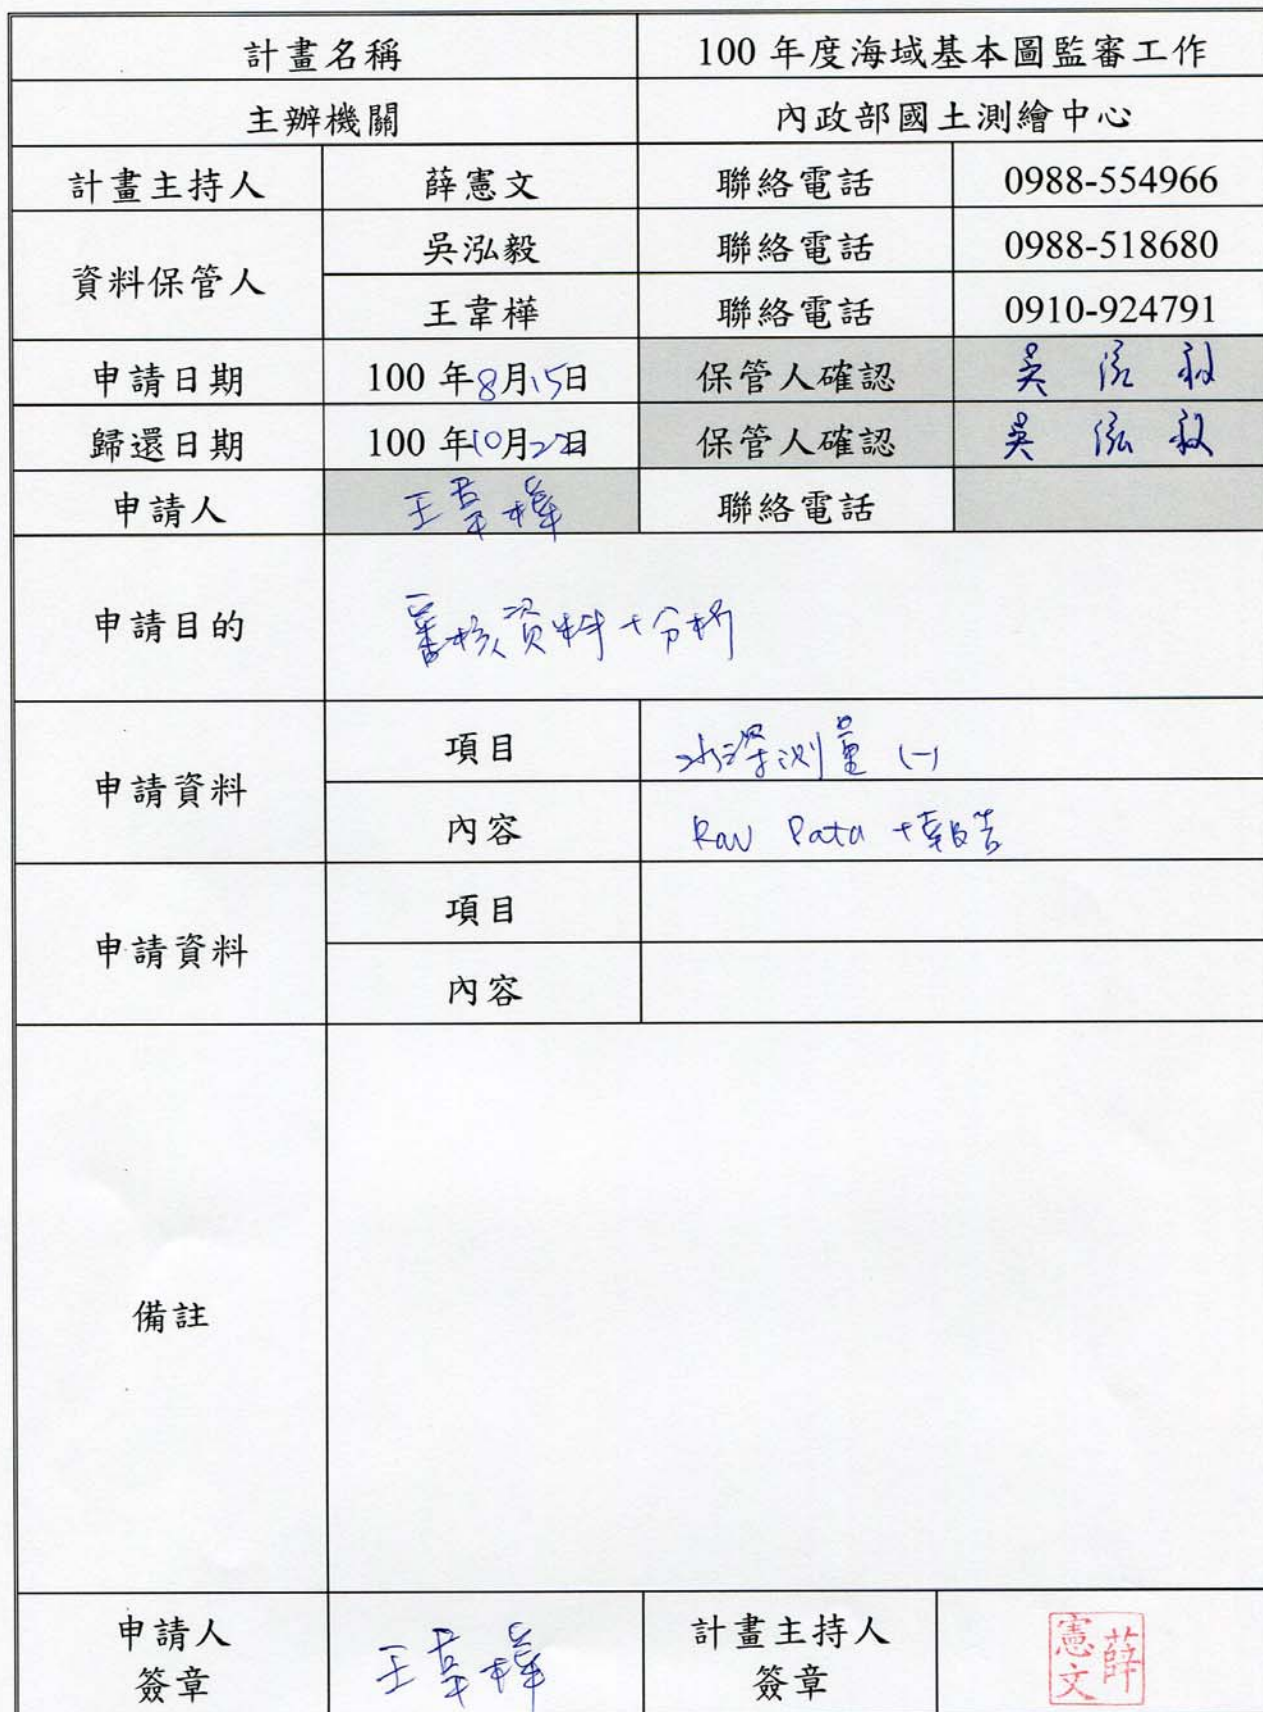 計畫名稱 100 年度海域基本圖監審工作
主辦機關 內政部國土測繪中心
計畫主持人 薛憲文 聯絡電話 0988-554966
資料保管人
吳泓毅 聯絡電話 0988-518680
王韋樺 聯絡電話 0910-924791
申請日期 100 年8月15日 保管人確認 吳泓毅
歸還日期 100 年10月22日 保管人確認 吳泓毅
申請人 王韋樺 聯絡電話
申請目的 審核資料+分析
申請資料
項目 水深測量(一)
內容 Raw Data +報告
申請資料
項目
內容
備註
申請人
簽章
王韋樺
計畫主持人
簽章
薛
憲文